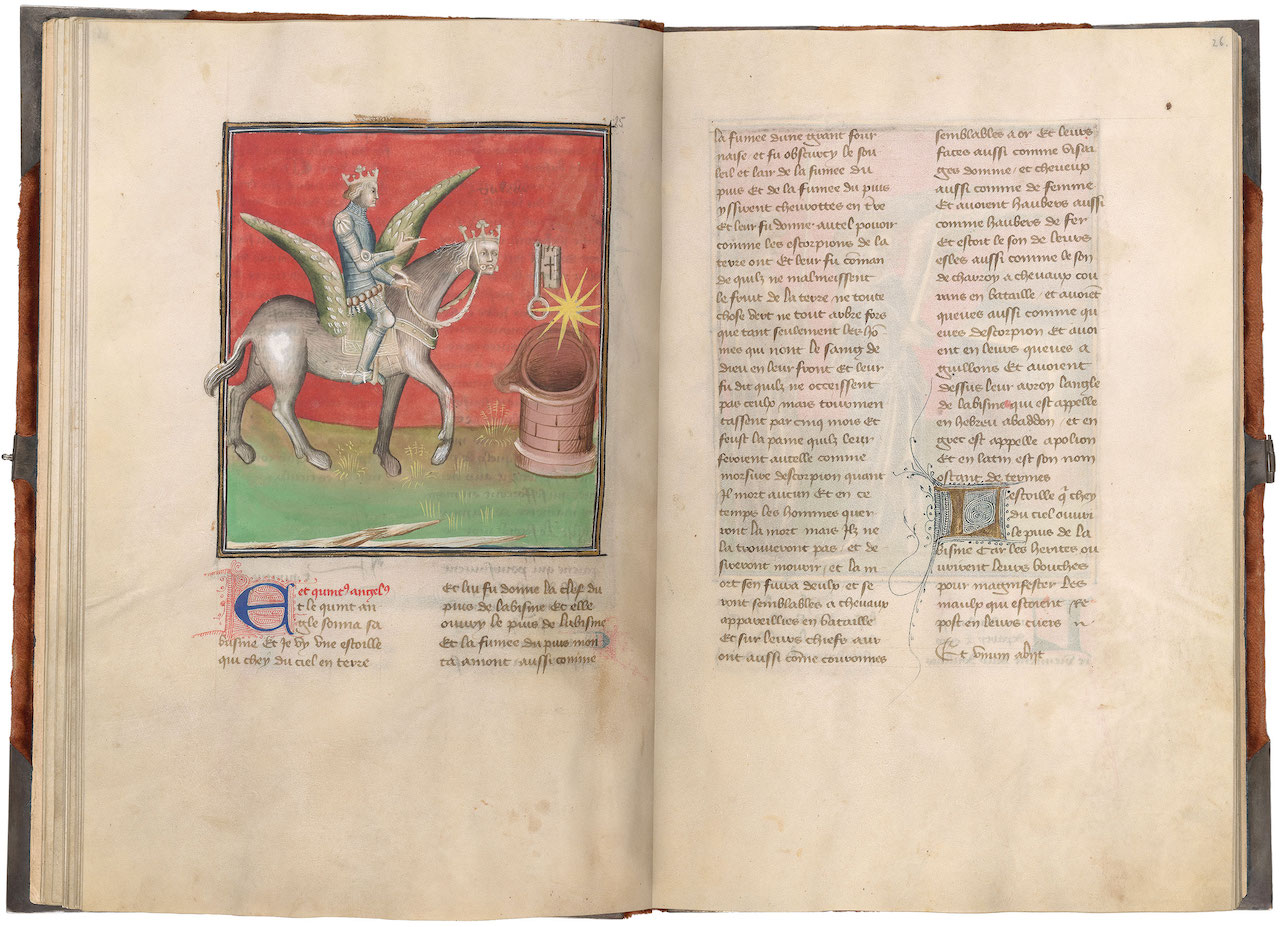 25
Et quint9 angel9
Et le quint an
gle sonna sa
busine Et Je vy vne estoille
qui chey du ciel en terre
Et lui fu donne la clef du
puis de labisme Et elle
ouury le puis de labisme
Et la fumee du puis mon
ta amont aussi comme
26.
la fumee dune grant four
naise et fu obscurcy le sou
leil et lair de la fumee du
puis Et de la fumee du puis
yssirent cheurottes en tre
Et leur fu donne autel pouoir
comme les escorpions de la
terre ont Et leur fu coman
de quilz ne malmeissent
le fruit de la terre ne toute
chose vert ne tout arbre fors
que tant seulement les ho
mes qui nont le saing de
dieu en leur front Et leur
fu dit quilz ne occeissent
pas ceulx mais tourmen
tassent par cinq mois Et
feust la paine quilz leur
feroient autelle comme
morsure descorpion quant
Il mort aucun Et en ce
temps les hommes quer
ront la mort mais Ilz ne
la trouueront pas / et de
sireront mourir / et la m
ort sen fuira deulx et se
ront semblables a cheuaux
appareillies en bataille
Et sur leurs chiefs aur
ont aussi come couronnes
semblables a or Et leurs
faces aussi comme visai
ges domme / et cheueux
aussi comme de femme
Et auoient haubers aussi
comme haubers de fer
Et estoit le son de leurs
esles aussi comme le son
de charroy a cheuaux cou
rans en bataille / et auoiet
queues aussi comme qu
eues descorpion Et auoi
ent en leurs queues a
guillons Et auoient
dessus leur arroy langle
de labisme qui est appelle
en hebreu abaddon / et en
grec est appelle apolion
Et en latin est son nom
ostant de termes
L estoille q chey
du ciel ouuri
le puis de la
bisme Car les herites ou
urirent leurs bouches
pour magnifester les
maulx qui estoient re
post en leurs cuers
Et vnum abijt